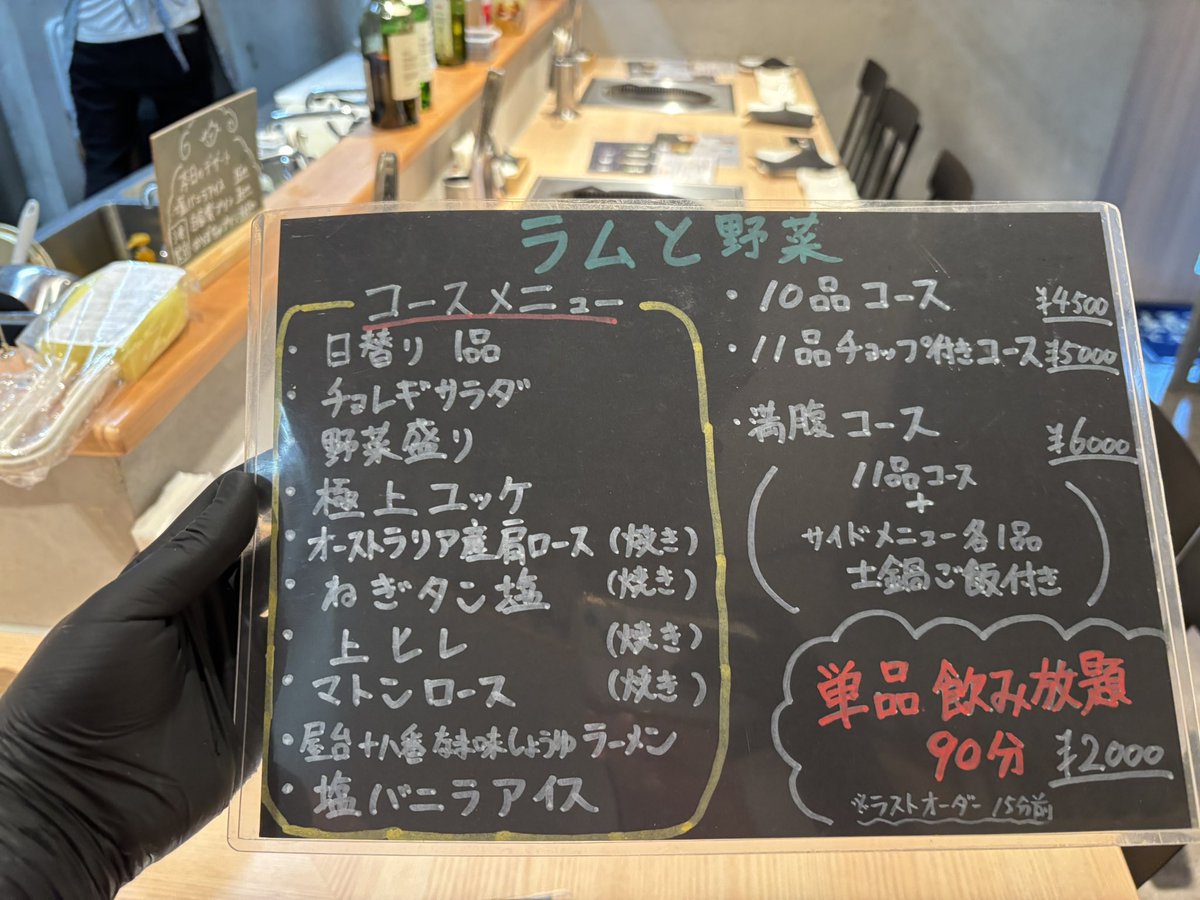 ラムと野菜
コースメニュー
・日替り 1品
・チョレギサラダ
野菜盛り
・極上ユッケ
・オーストラリア産肩ロース (焼き)
・ねぎタン塩 (焼き)
・上ヒレ (焼き)
・マトンロース (焼き)
・屋台十八番なま味しょうゆラーメン
・塩バニラアイス
・10品コース ¥4500
・11品チョップ付きコース ¥5000
・満腹コース ¥6000
11品コース
+
サイドメニュー各1品
土鍋ご飯付き
単品飲み放題
90分 ¥2000
※ラストオーダー 15分前
本日のデザート